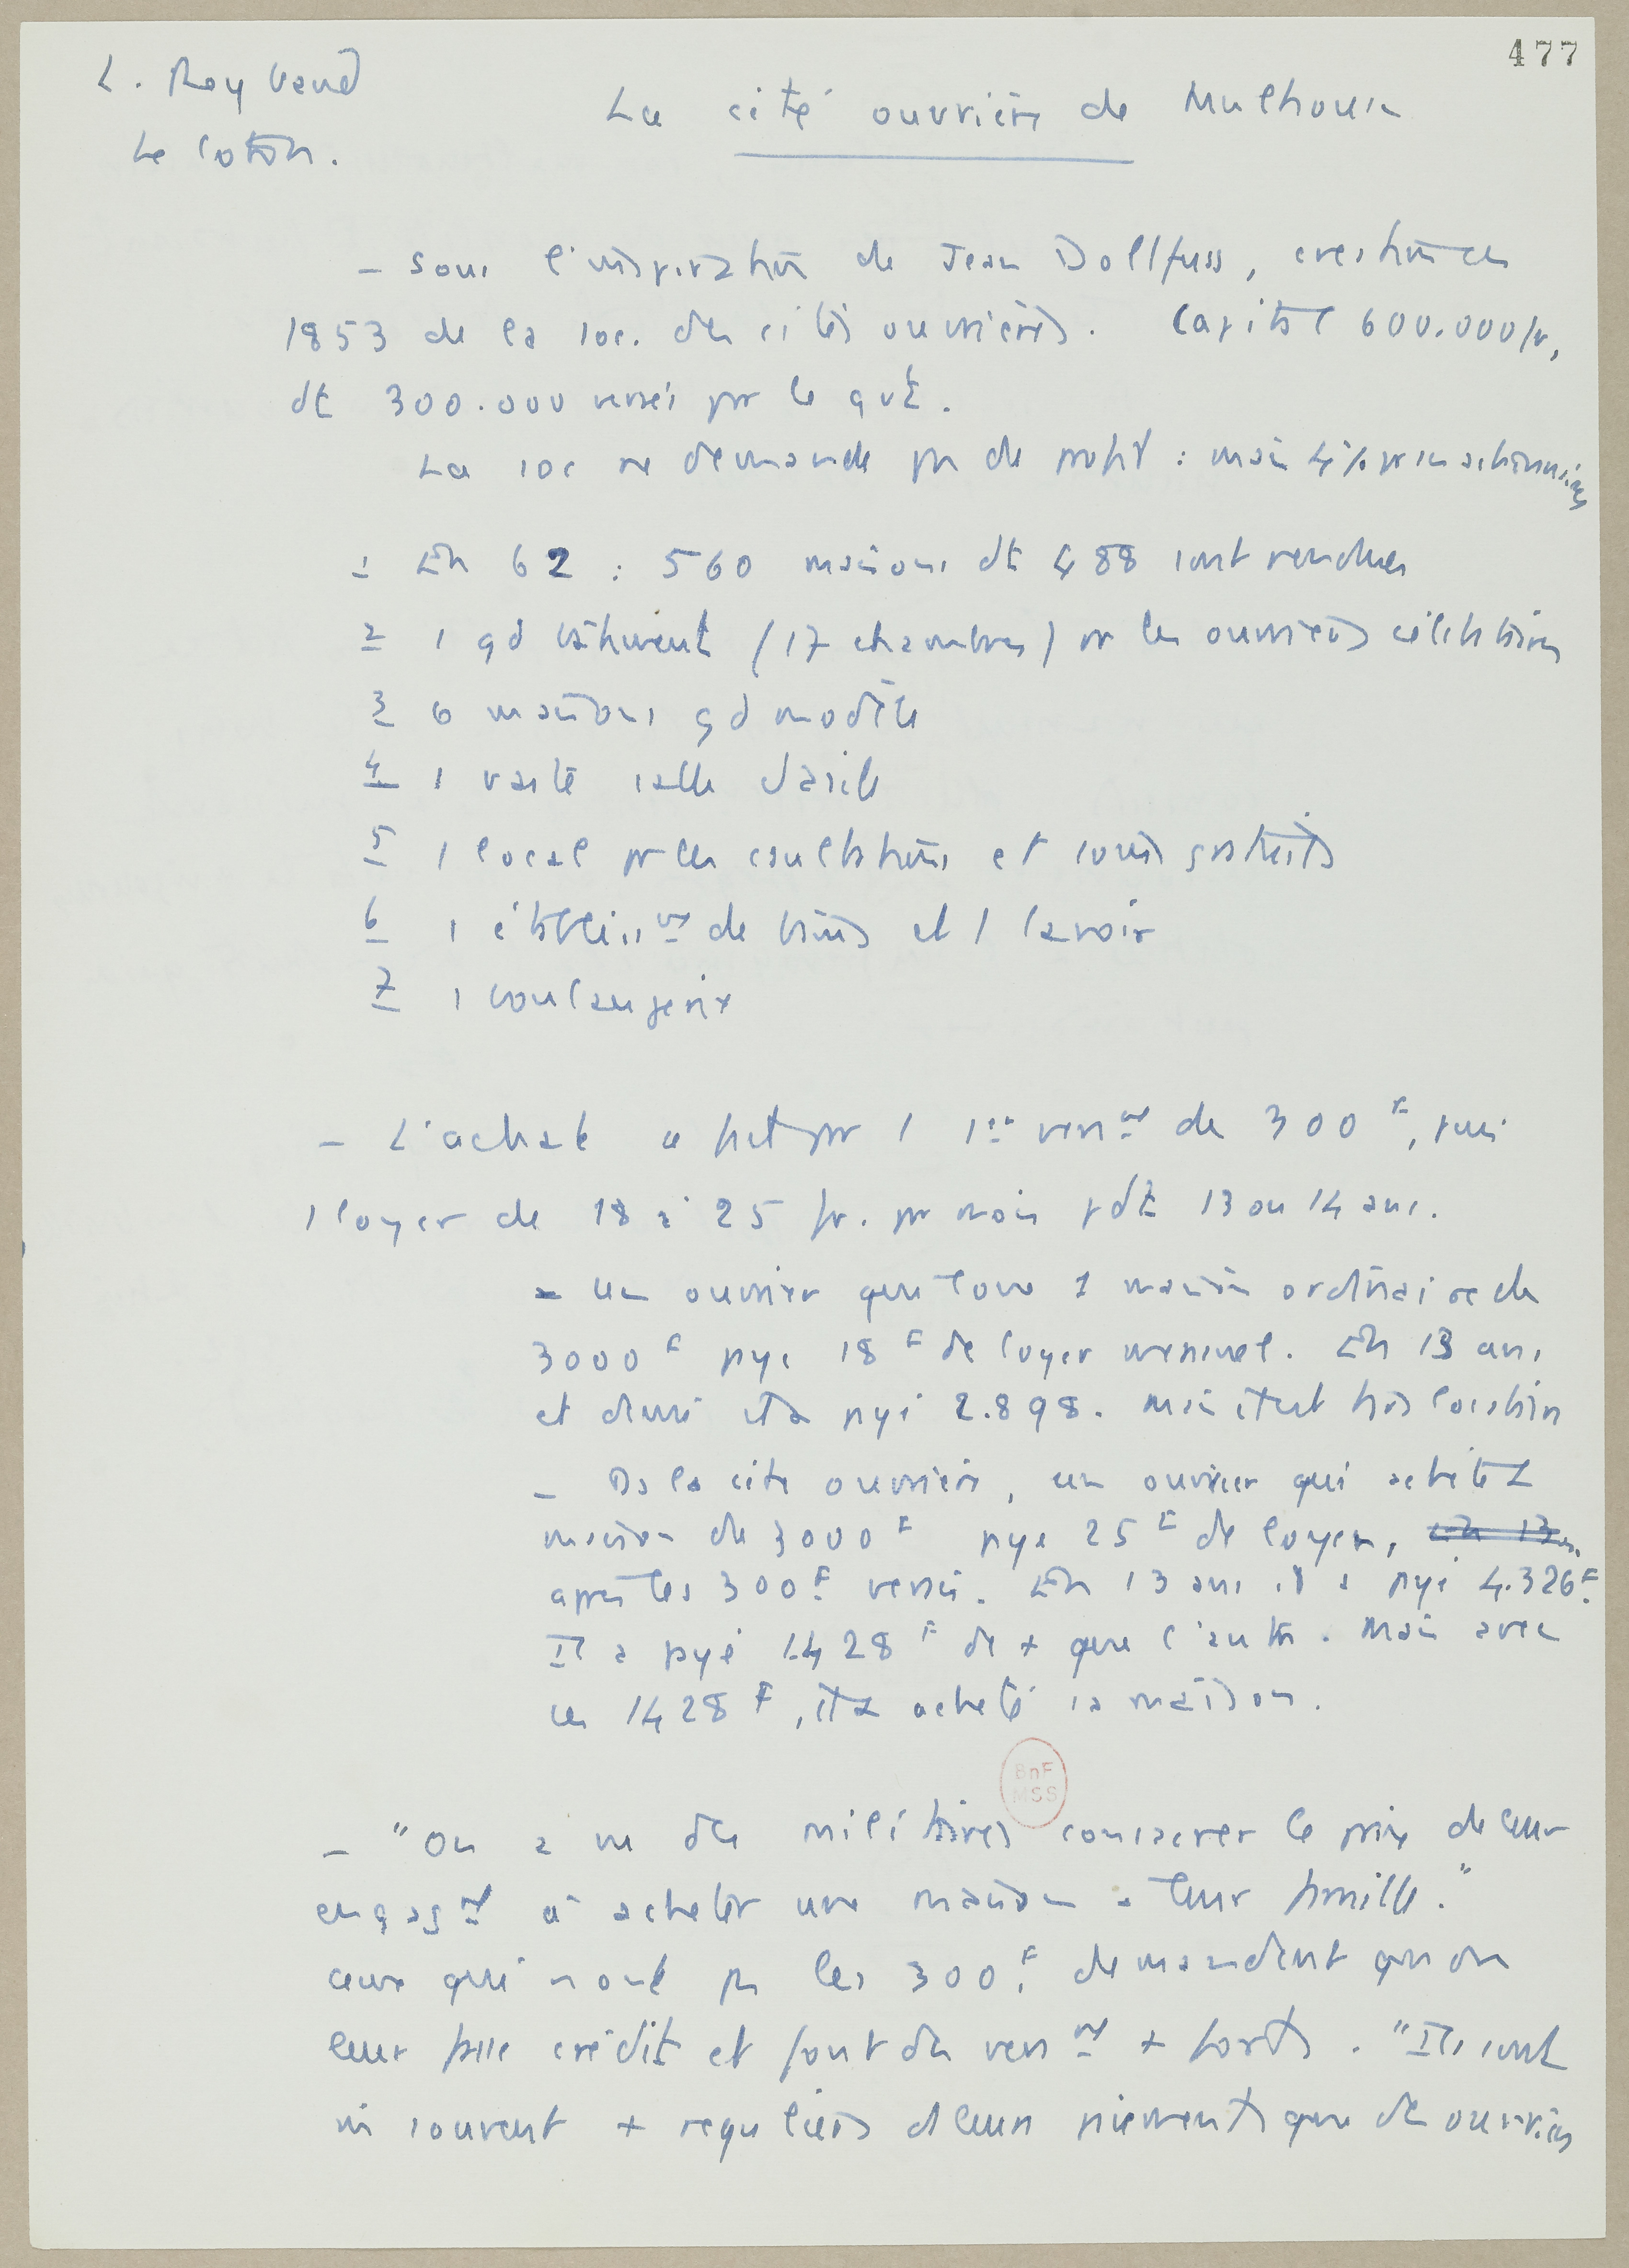 477
L. Reybaud
Le Coton.
La cité ouvrière de Mulhouse
- Sous l'inspiration de Jean Dollfuss, création en
1853 de la soc. des cités ouvrières. Capital 600.000 fr,
dt 300.000 versés par le gvt.
La soc ne demande pas de profit : mais 4% pr ses actionnaires
1 En 62 : 560 maisons dt 488 sont vendues
2 1 gd bâtiment (17 chambres) pr les ouvriers célibataires
3 6 maisons gd modèle
4 1 vaste salle d'asile
5 1 local pr les consultations et soins gratuits
6 1 établisst de bains et 1 lavoir
7 1 boulangerie
- L'achat se fait par 1 1er versmt de 300 F, puis
1 loyer de 18 à 25 fr. par mois pdt 13 ou 14 ans.
- un ouvrier qui loue 1 maison ordinaire de
3000 F paye 18 F de loyer mensuel. En 13 ans
et demi il a payé 2.898. Mais il est tjs locataire
- Ds la cité ouvrière, un ouvrier qui achète 1
maison de 3000 F paye 25 F de loyer, En 13
après les 300 F versés. En 13 ans il a payé 4.326 F
Il a payé 1428 F de + que l'autre. Mais avec
ces 1428 F, il a acheté sa maison.
BnF
MSS
- "On a vu des militaires consacrer le prix de leur
engagmt à acheter une maison à leur famille."
Ceux qui n'ont pas les 300 F demandent qu'on
leur fasse crédit et font des versmt + forts. "Ils sont
souvent + réguliers ds leurs paiements que des ouvriers